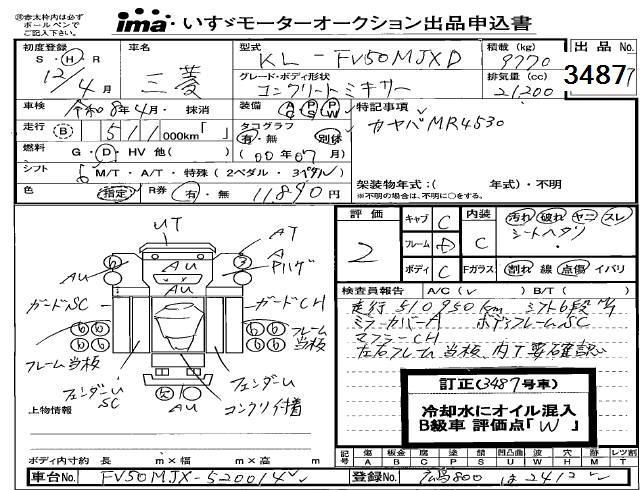 ※赤太枠内は必ず
ボールペンで
ご記入下さい。
ima いすゞモーターオークション出品申込書
初度登録 S・H・R 12/4月
車名 三菱
型式 KL-FV50MJXD
積載(kg) 9770
出品No. 3487
グレード・ボディ形状 コンクリートミキサー
排気量(cc) 21,200
車検 令和8年4月・抹消
装備 AC PS PW
特記事項 カヤバMR4530
走行 B 511 000km「 」
タコグラフ 有・無 別体
(00年07月)
燃料 G・D・HV 他( )
シフト 6 M/T・A/T・特殊(2ペダル・3ペダル)
架装物年式:( 年式)・不明
※不明の場合は、不明に○をする。
色 指定 R券 有・無 11,890円
評価 2
キャブ C
フレーム
ボディ C
内装 C
汚れ 破れ ヤニ スレ
シートヘタリ
Fガラス 割れ 線 点傷 イバリ
UT
AT
A
AU
AU
AU
ガードSC
ガードCH
フレーム当板
フレーム当板
フェンダーU
SC
フェンダーU
AU
コンクリ付着
上物情報
検査員報告 A/C( ) B/T( )
走行510950km シフト6段
ミラーカバーA ボディフレームSC
マフラーCH
左右フレーム当板、内下要確認
訂正(3487号車)
冷却水にオイル混入
B級車 評価点「W」
ボディ内寸約 長 m×幅 m×高 m
記号 傷A 板金B 腐C 塗P 錆S 凹凸曲U 波W 穴H 跡M レツ割T
車台No. FV50MJX-520014
登録No. 広島800 は2412